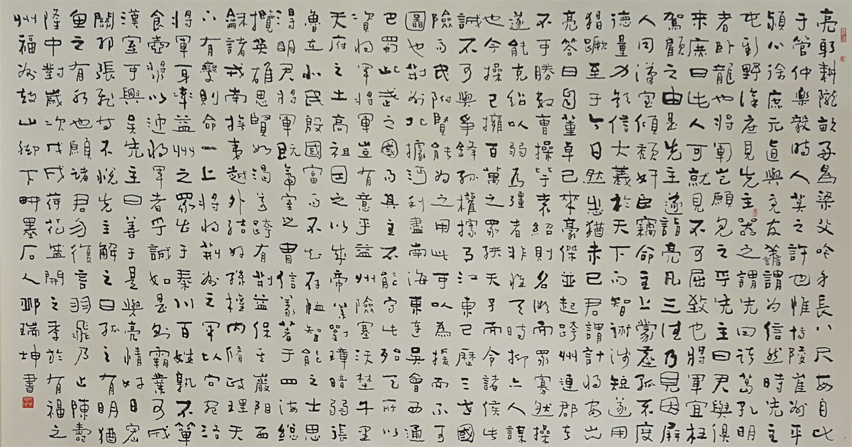 亮躬耕隴畝好為梁父吟身長八尺每自比
于管仲樂毅時人莫之許也惟博陵崔州平
潁川徐庶元直與亮友善謂為信然時先主
屯新野徐庶見先主器之謂先主曰諸葛孔明
者臥龍也將軍豈願見之乎先主曰君與俱
來庶曰此人可就見不可屈致也將軍宜枉
駕顧之由是先主遂詣亮凡三往乃見因屏
人曰漢室傾頹奸臣竊命主上蒙塵孤不度
德量力欲信大義於天下而智術淺短遂用
猖蹶至于今日然志猶未已君謂計將安出
亮答曰自董卓已來豪傑並起跨州連郡者
不可勝數曹操比于袁紹則名微而眾寡然操
遂能克紹以弱為強者非惟天時抑亦人謀
也今操已擁百萬之眾挾天子而令諸侯此
誠不可與爭鋒孫權據有江東已歷三世國
險而民附賢能為之用此可以為援而不可
圖也荊州北據漢沔利盡南海東連吳會西通
巴蜀此用武之國而其主不能守此殆天所以
資將軍將軍豈有意乎益州險塞沃野千里
天府之土高祖因之以成帝業劉璋暗弱張
魯在北民殷國富而不知存恤智能之士思
得明君將軍既帝室之胄信義著于四海總
攬英雄思賢如渴若跨有荊益保其巖阻西
和諸戎南撫夷越外結好孫權內脩政理天
下有變則命一上將將荊州之軍以向宛洛
將軍身率益州之眾出于秦川百姓孰不簞
食壺漿以迎將軍者乎誠如是則霸業可成
漢室可興矣先主曰善于是與亮情好日密
關羽張飛等不悅先主解之曰孤之有孔明猶
魚之有水也願諸君勿復言羽飛乃止陳壽
隆中對歲次戊戌荷花盛開之季於有福之
州福州鼓山腳下耕墨石人瑞坤書